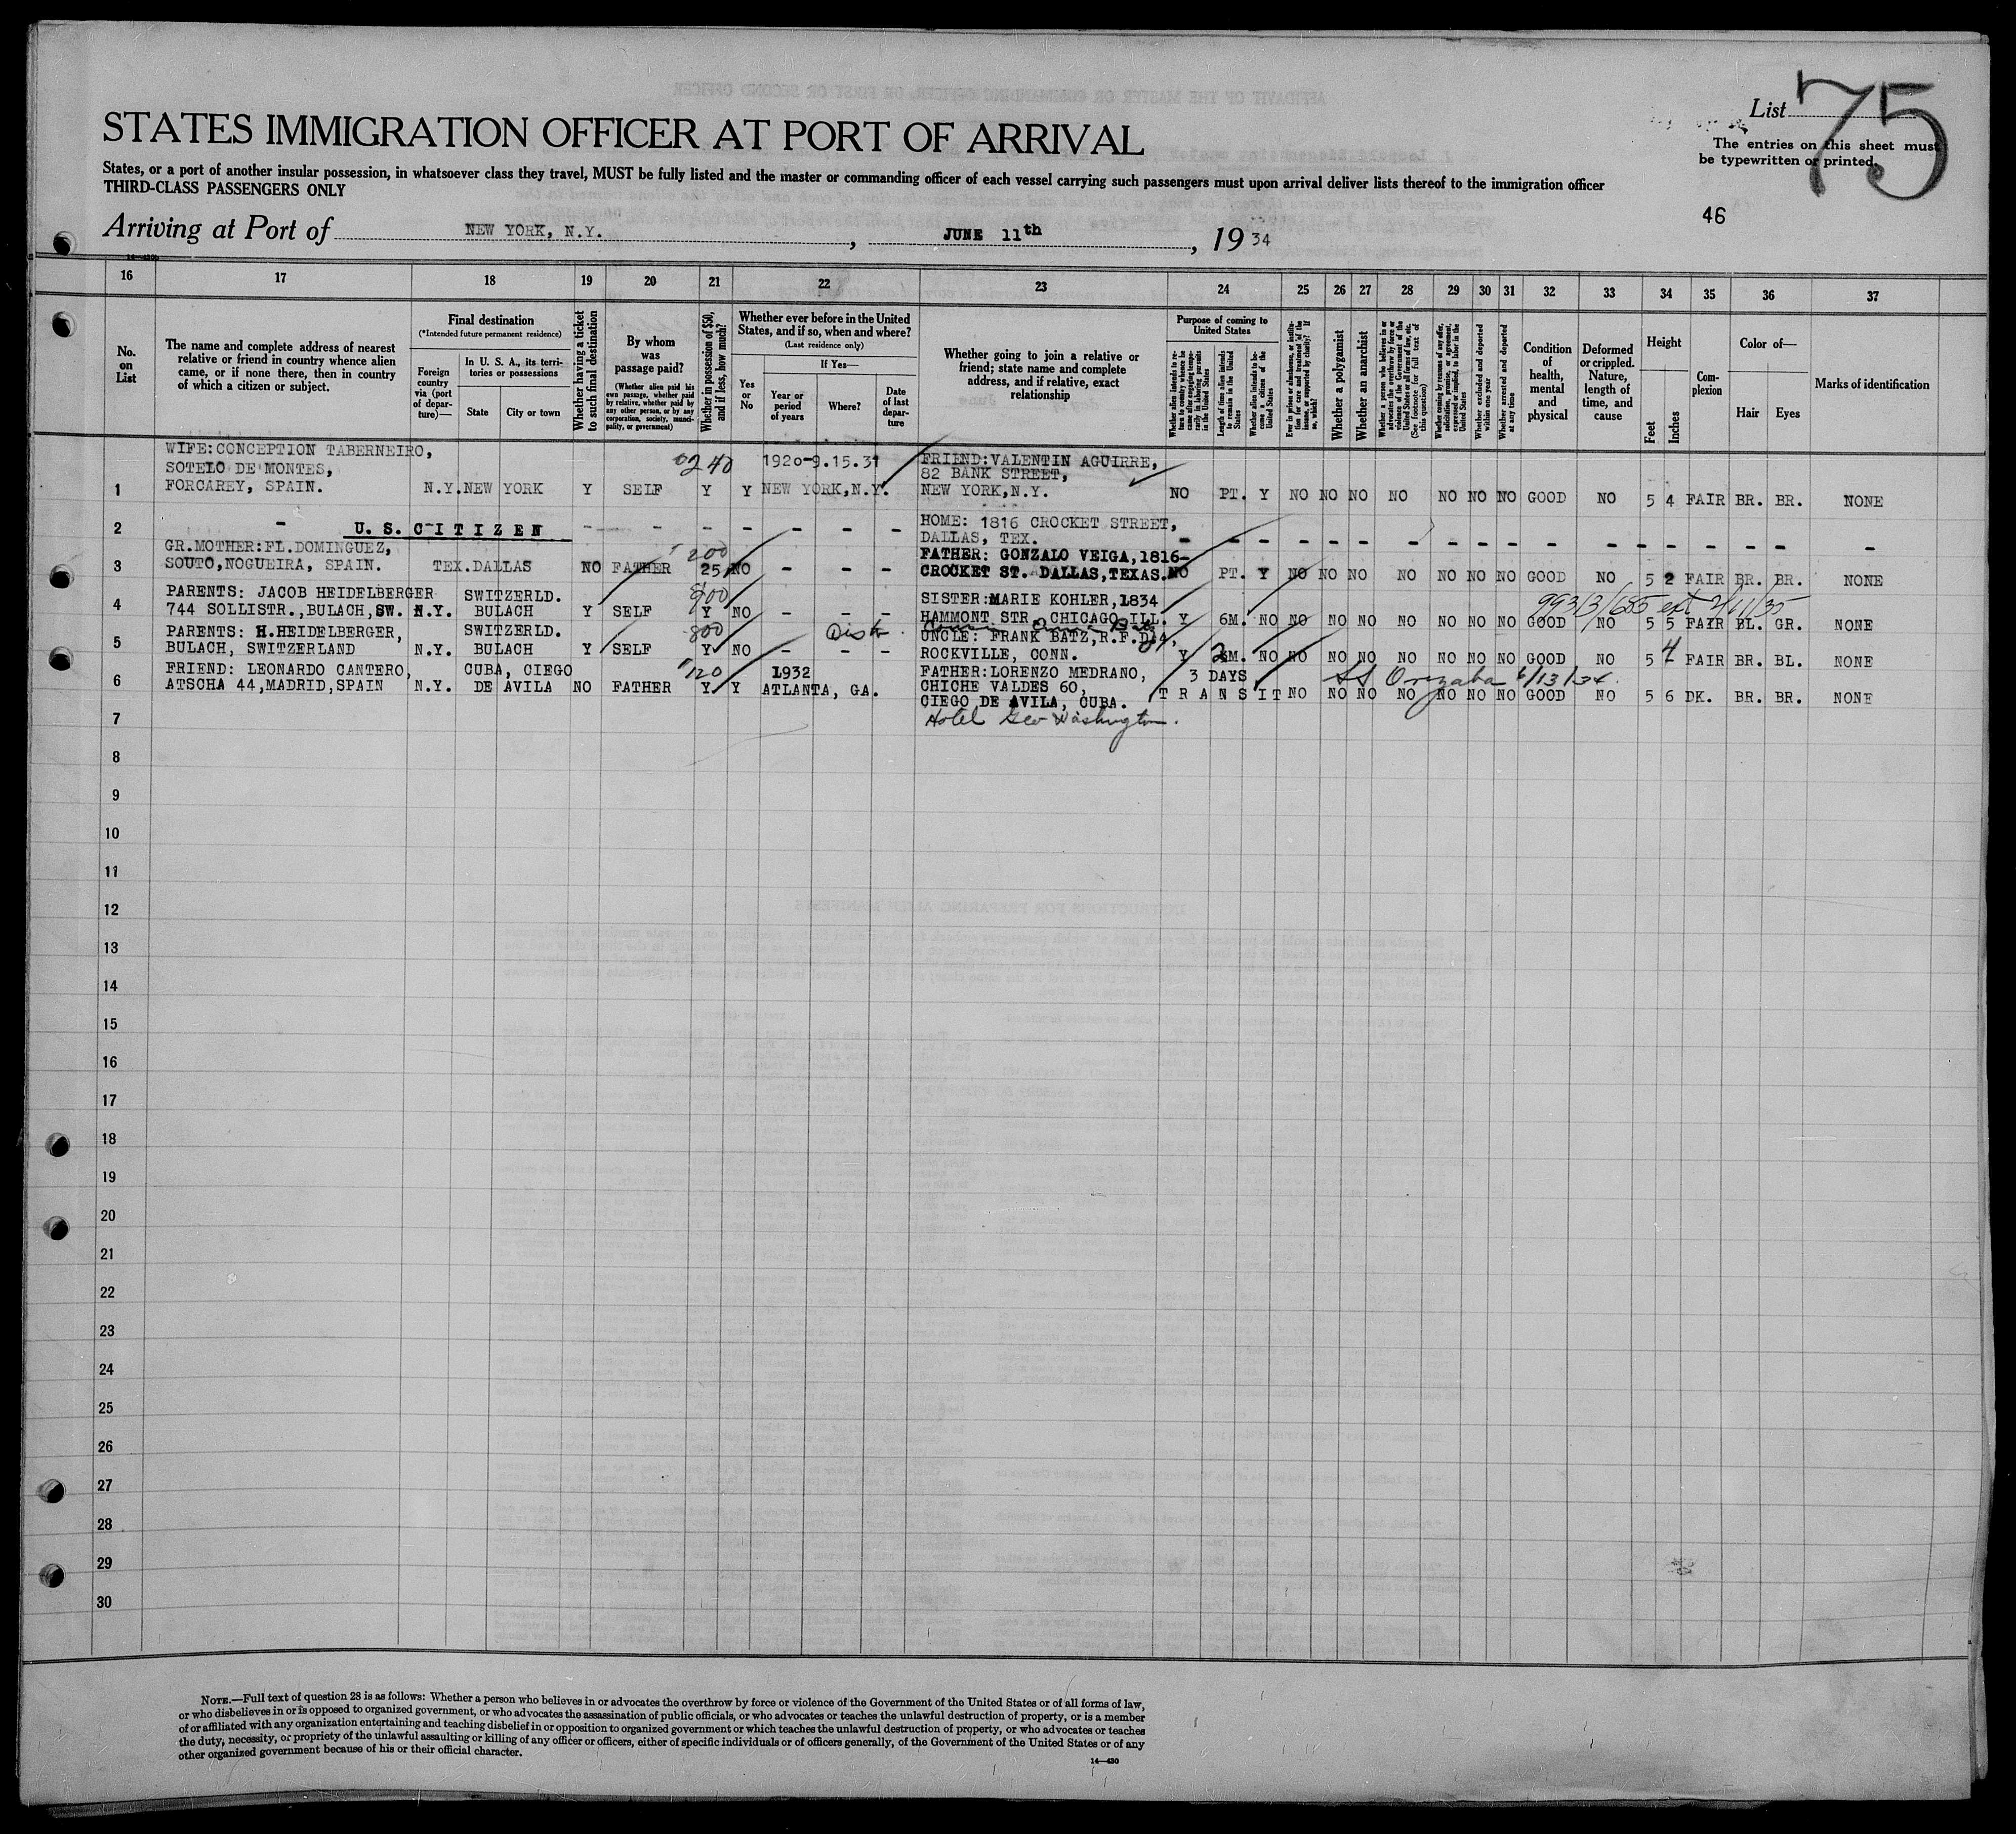 List 75
STATES IMMIGRATION OFFICER AT PORT OF ARRIVAL
The entries on this sheet must
be typewritten or printed.
States, or a port of another insular possession, in whatsoever class they travel, MUST be fully listed and the master or commanding officer of each vessel carrying such passengers must upon arrival deliver lists thereof to the immigration officer
THIRD-CLASS PASSENGERS ONLY
46
Arriving at Port of NEW YORK, N.Y., JUNE 11th, 1934
16 17 18 19 20 21 22 23 24 25 26 27 28 29 30 31 32 33 34 35 36 37
No. on List
The name and complete address of nearest
relative or friend in country whence alien
came, or if none there, then in country
of which a citizen or subject.
Final destination
(*Intended future permanent residence)
Foreign country via (port of departure)—
In U. S. A., its territories or possessions
State City or town
Whether having a ticket to such final destination
By whom was passage paid?
(Whether alien paid his own passage, whether paid by relative, whether paid by any other person, or by any corporation, society, municipality, or government)
Whether in possession of $50, and if less, how much?
Whether ever before in the United
States, and if so, when and where?
(Last residence only)
Yes or No
If Yes—
Year or period of years
Where?
Date of last departure
Whether going to join a relative or
friend; state name and complete
address, and if relative, exact
relationship
Purpose of coming to United States
Length of time alien intends to remain in the United States
Whether alien intends to become a citizen of the United States
Whether a polygamist
Whether an anarchist
(See footnote for full text of this question)
Whether excluded and deported within one year
Whether arrested and deported at any time
Condition of health, mental and physical
Deformed or crippled. Nature, length of time, and cause
Height
Feet Inches
Complexion
Color of—
Hair Eyes
Marks of identification
WIFE:CONCEPTION TABERNEIRO,
SOTELO DE MONTES,
FORCAREY, SPAIN.
1 N.Y. NEW YORK Y SELF 240 Y Y 1920-9.15.31 NEW YORK, N.Y.
FRIEND:VALENTIN AGUIRRE,
82 BANK STREET,
NEW YORK,N.Y.
NO PT. Y NO NO NO NO NO NO NO GOOD NO 5 4 FAIR BR. BR. NONE
2 - U.S.CITIZEN - - - - - -
HOME: 1816 CROCKET STREET,
DALLAS, TEX.
GR.MOTHER:FL.DOMINGUEZ,
3 SOUTO,NOGUEIRA, SPAIN. TEX. DALLAS NO FATHER 200 25 NO - - -
FATHER: GONZALO VEIGA,1816-
CROCKET ST. DALLAS,TEXAS.
NO PT. Y NO NO NO NO NO NO NO GOOD NO 5 2 FAIR BR. BR. NONE
PARENTS: JACOB HEIDELBERGER SWITZERLD.
4 744 SOLLISTR.,BULACH,SW. N.Y. BULACH Y SELF Y NO - - -
SISTER:MARIE KOHLER,1834
HAMMONT STR. CHICAGO,ILL.
993/3/685 ext 2/11/35
Y 6M. NO NO NO NO NO NO NO NO GOOD NO 5 5 FAIR BL. GR. NONE
PARENTS: H.HEIDELBERGER, SWITZERLD.
5 BULACH, SWITZERLAND N.Y. BULACH Y SELF 800 Y NO - - -
UNCLE: FRANK BATZ,R.F.D.4,
ROCKVILLE, CONN.
Y 2M. NO NO NO NO NO NO NO NO GOOD NO 5 4 FAIR BR. BL. NONE
FRIEND: LEONARDO CANTERO, CUBA, CIEGO
6 ATSCHA 44,MADRID,SPAIN N.Y. DE AVILA NO FATHER 120 Y Y 1932 ATLANTA, GA.
FATHER:LORENZO MEDRANO,
CHICHE VALDES 60,
CIEGO DE AVILA, CUBA.
Hotel Geo Washington.
3 DAYS
TRANSIT
SS Orizaba 6/13/34.
NO NO NO NO NO NO NO GOOD NO 5 6 DK. BR. BR. NONE
7
8
9
10
11
12
13
14
15
16
17
18
19
20
21
22
23
24
25
26
27
28
29
30
NOTE.—Full text of question 28 is as follows: Whether a person who believes in or advocates the overthrow by force or violence of the Government of the United States or of all forms of law,
or who disbelieves in or is opposed to organized government, or who advocates the assassination of public officials, or who advocates or teaches the unlawful destruction of property, or is a member
of or affiliated with any organization entertaining and teaching disbelief in or opposition to organized government or which teaches the unlawful destruction of property, or who advocates or teaches
the duty, necessity, or propriety of the unlawful assaulting or killing of any officer or officers, either of specific individuals or of officers generally, of the Government of the United States or of any
other organized government because of his or their official character.
14—430